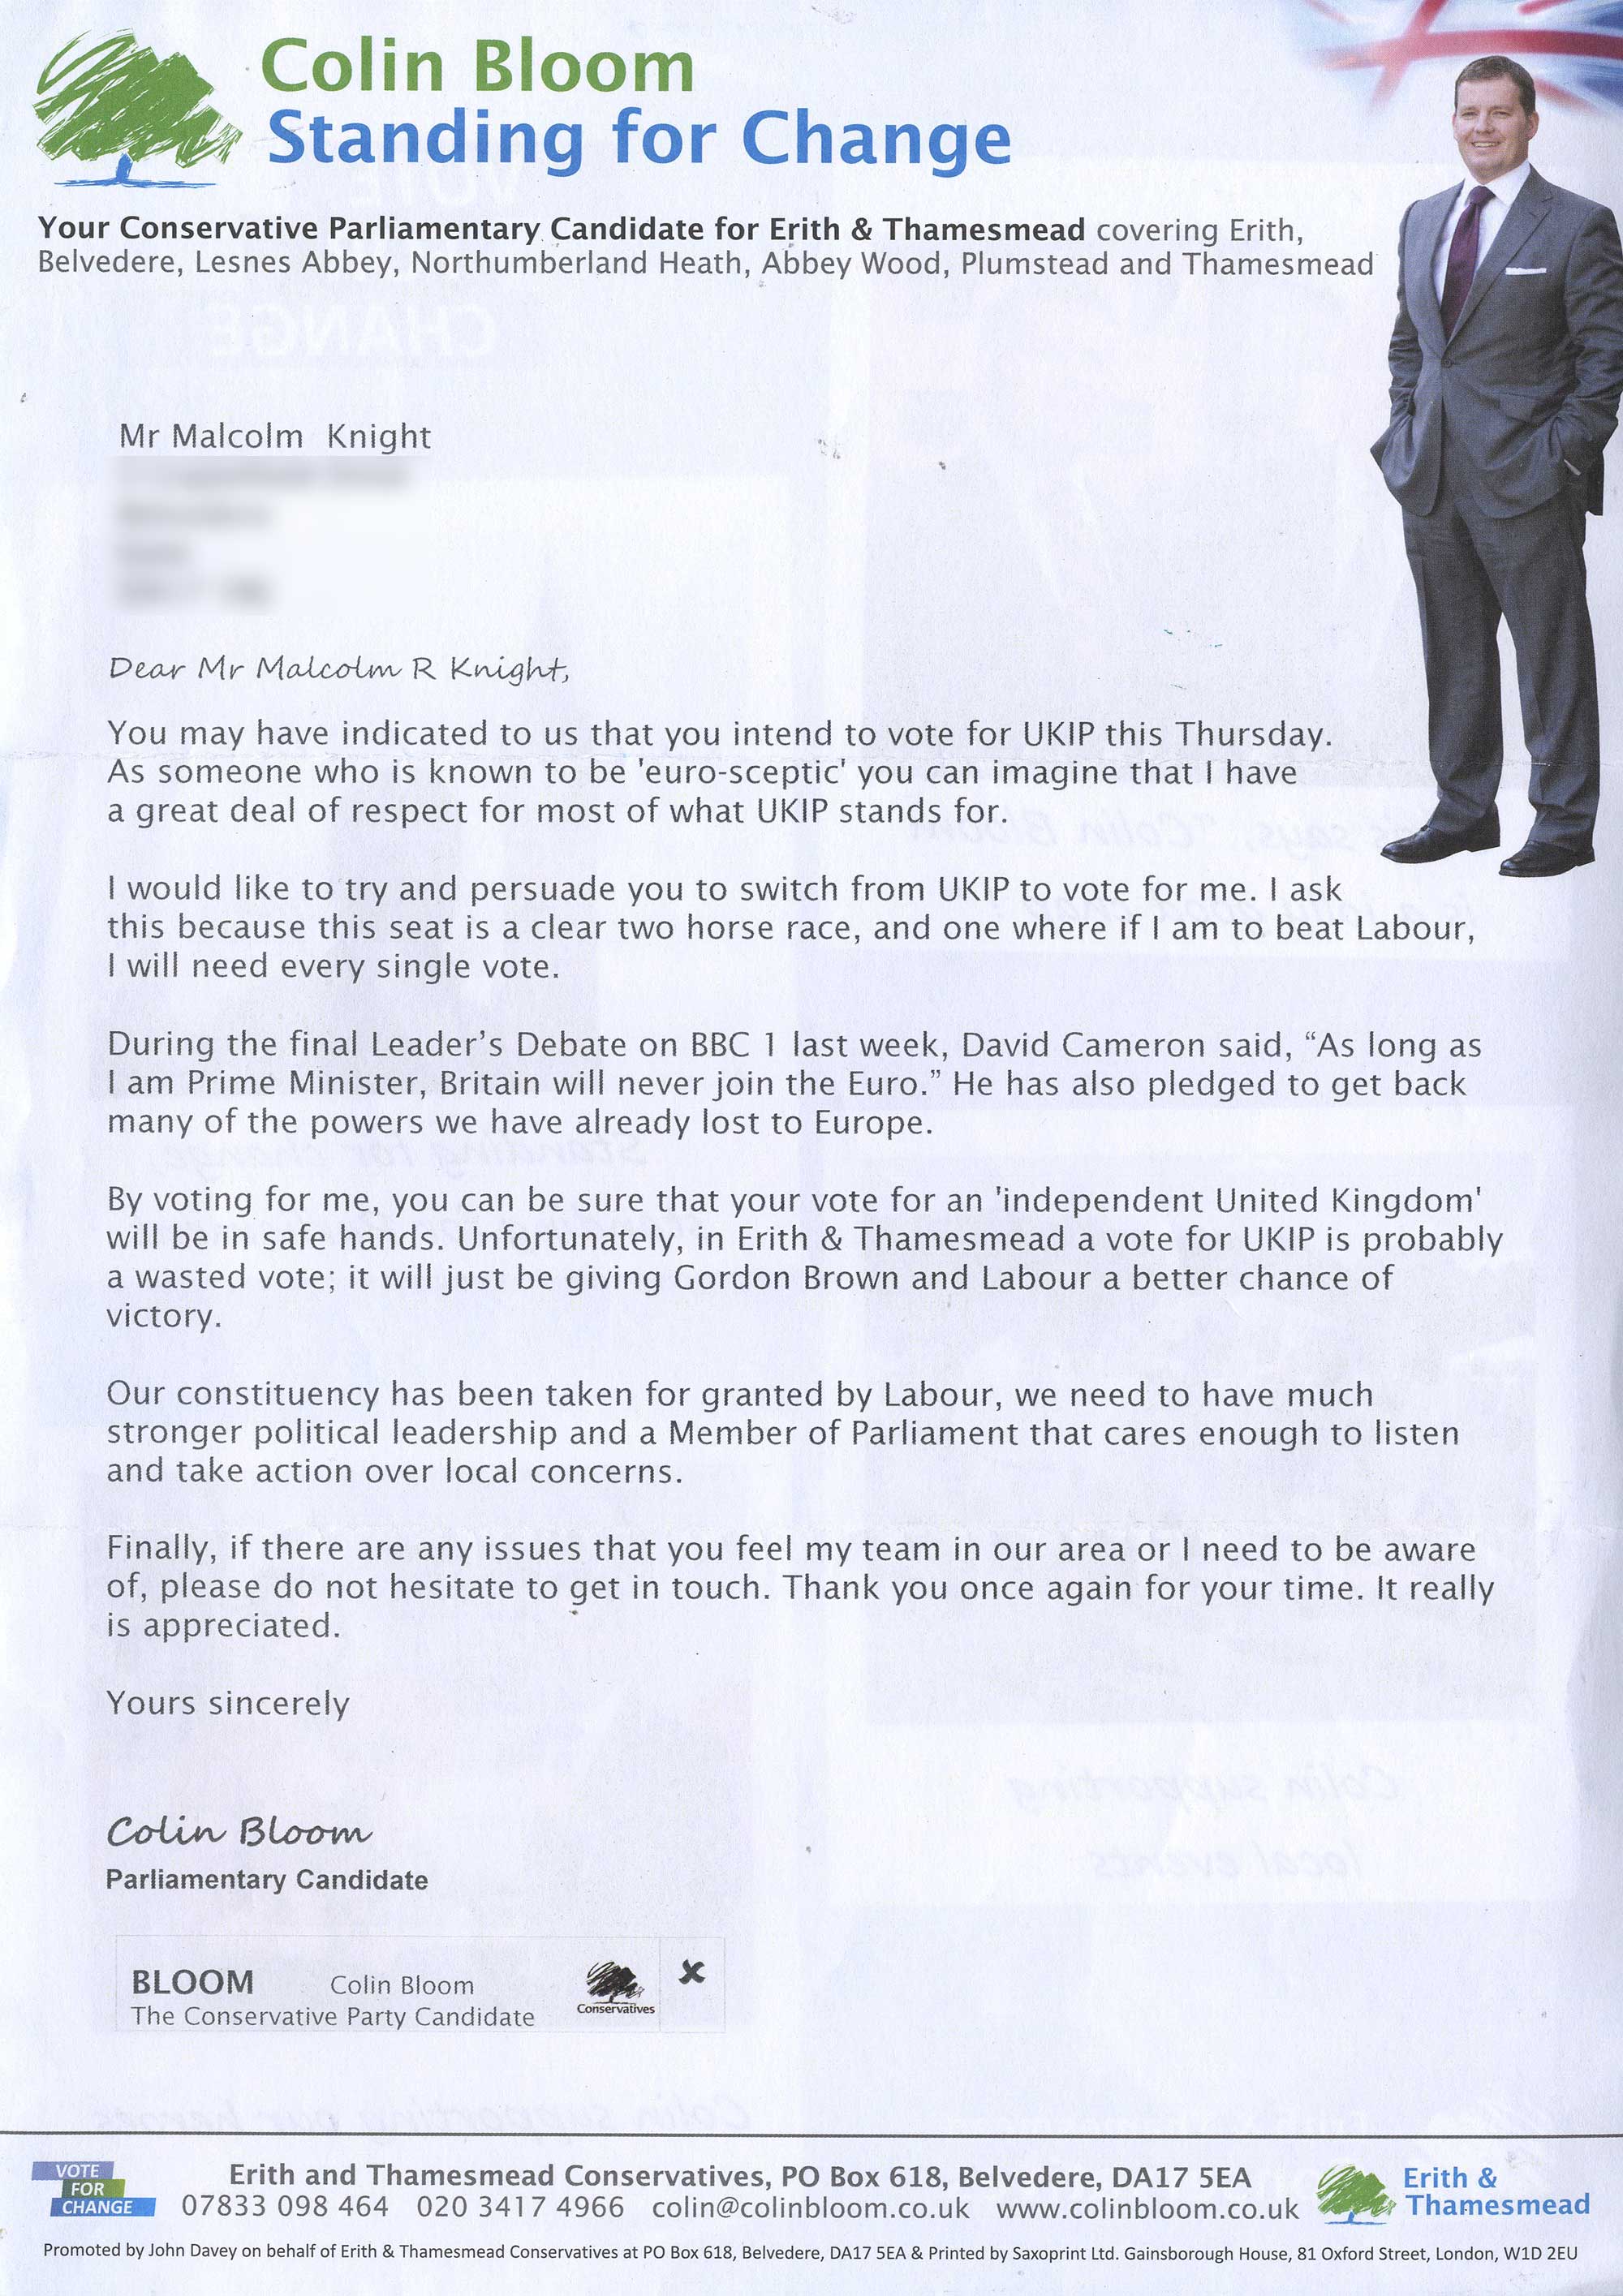 Colin Bloom
Standing for Change
Your Conservative Parliamentary Candidate for Erith & Thamesmead covering Erith,
Belvedere, Lesnes Abbey, Northumberland Heath, Abbey Wood, Plumstead and Thamesmead
Mr Malcolm Knight
Dear Mr Malcolm R Knight,
You may have indicated to us that you intend to vote for UKIP this Thursday.
As someone who is known to be 'euro-sceptic' you can imagine that I have
a great deal of respect for most of what UKIP stands for.
I would like to try and persuade you to switch from UKIP to vote for me. I ask
this because this seat is a clear two horse race, and one where if I am to beat Labour,
I will need every single vote.
During the final Leader’s Debate on BBC 1 last week, David Cameron said, “As long as
I am Prime Minister, Britain will never join the Euro.” He has also pledged to get back
many of the powers we have already lost to Europe.
By voting for me, you can be sure that your vote for an 'independent United Kingdom'
will be in safe hands. Unfortunately, in Erith & Thamesmead a vote for UKIP is probably
a wasted vote; it will just be giving Gordon Brown and Labour a better chance of
victory.
Our constituency has been taken for granted by Labour, we need to have much
stronger political leadership and a Member of Parliament that cares enough to listen
and take action over local concerns.
Finally, if there are any issues that you feel my team in our area or I need to be aware
of, please do not hesitate to get in touch. Thank you once again for your time. It really
is appreciated.
Yours sincerely
Colin Bloom
Parliamentary Candidate
BLOOM Colin Bloom
The Conservative Party Candidate
Conservatives
VOTE
FOR
CHANGE
Erith and Thamesmead Conservatives, PO Box 618, Belvedere, DA17 5EA
07833 098 464 020 3417 4966 colin@colinbloom.co.uk www.colinbloom.co.uk
Erith &
Thamesmead
Promoted by John Davey on behalf of Erith & Thamesmead Conservatives at PO Box 618, Belvedere, DA17 5EA & Printed by Saxoprint Ltd. Gainsborough House, 81 Oxford Street, London, W1D 2EU